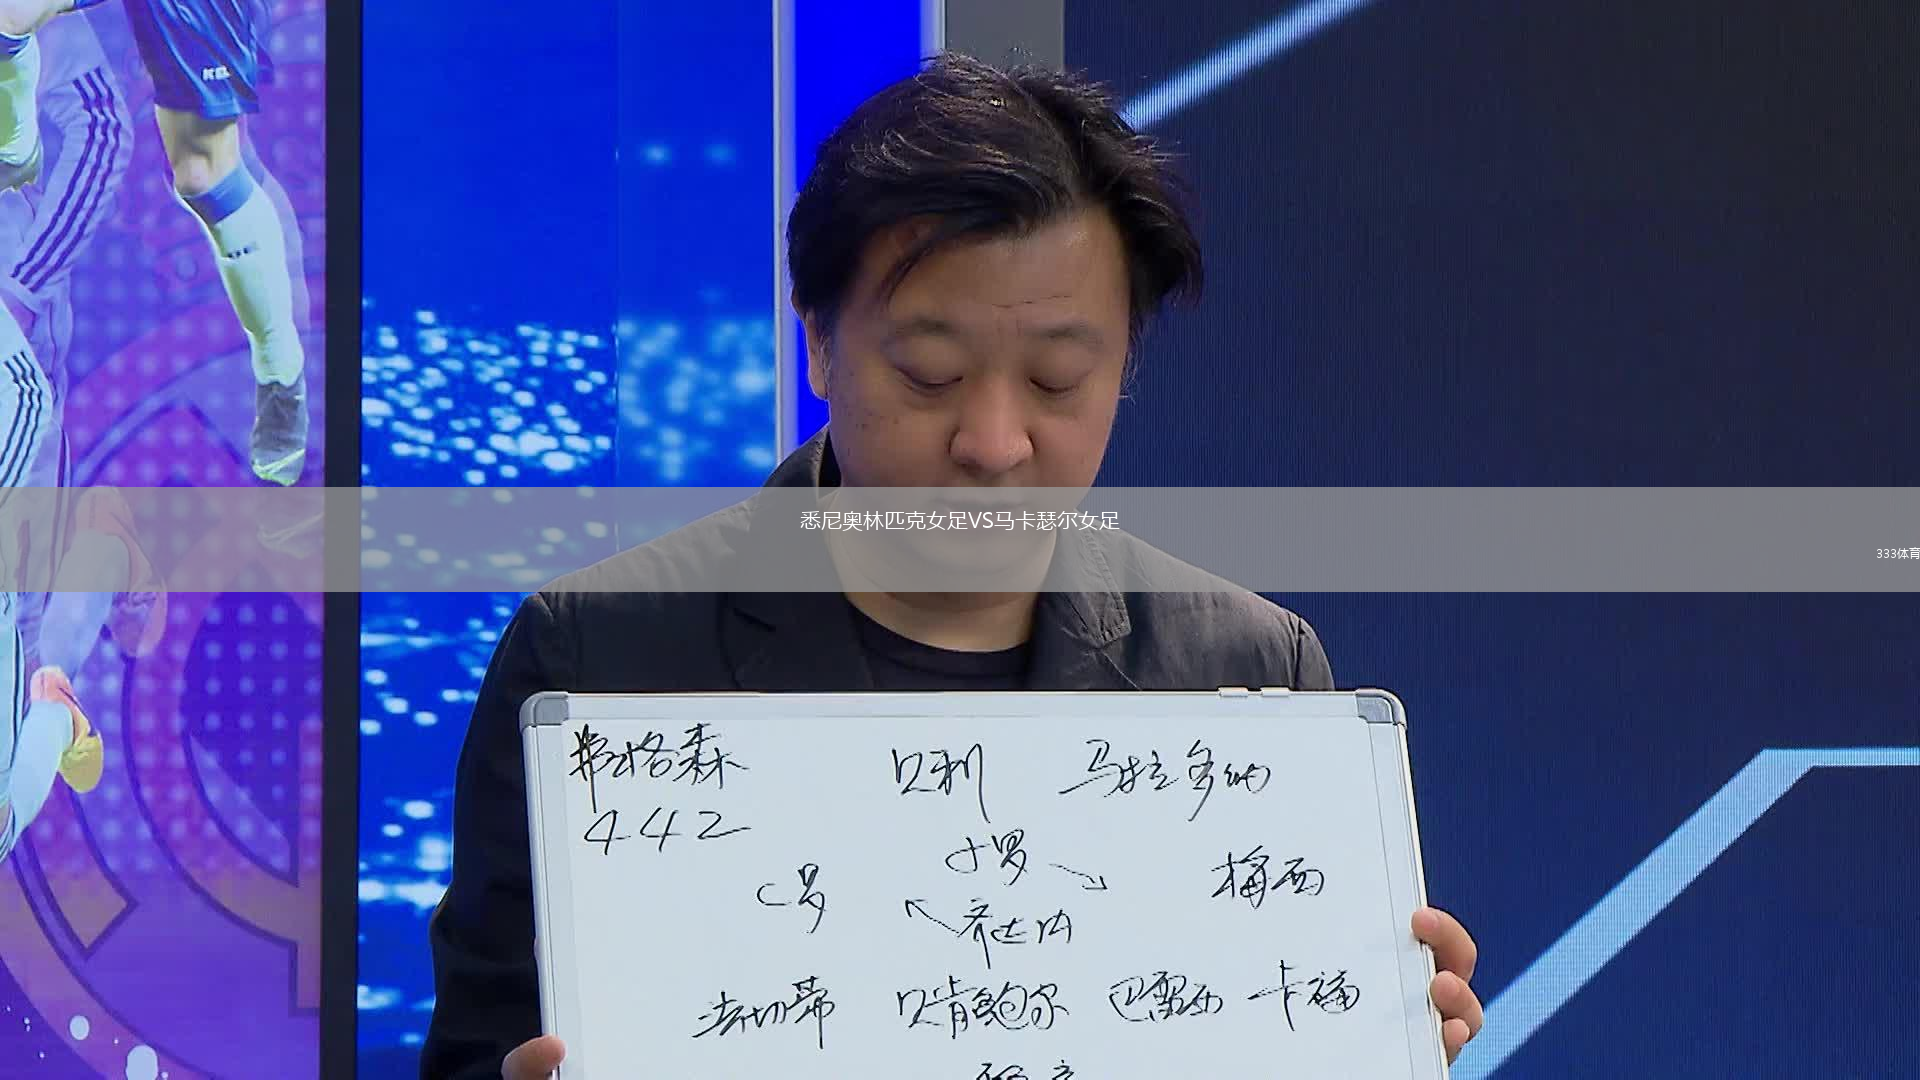 KEL
悉尼奥林匹克女足VS马卡瑟尔女足
333体育
弗格森 贝利 马拉多纳
442
小罗
C罗 梅西
齐达内
法切蒂 贝肯鲍尔 巴雷西 卡福